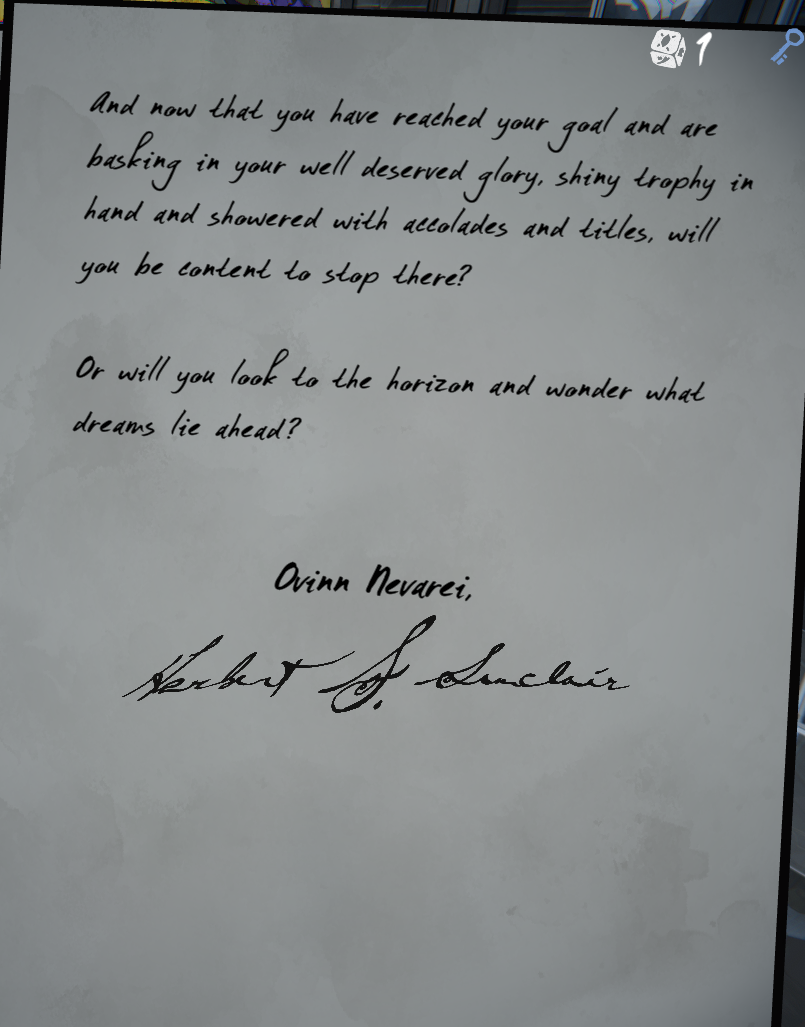 1
And now that you have reached your goal and are
basking in your well deserved glory, shiny trophy in
hand and showered with accolades and titles, will
you be content to stop there?
Or will you look to the horizon and wonder what
dreams lie ahead?
Ovinn Nevarei,
Herbert S. Sinclair